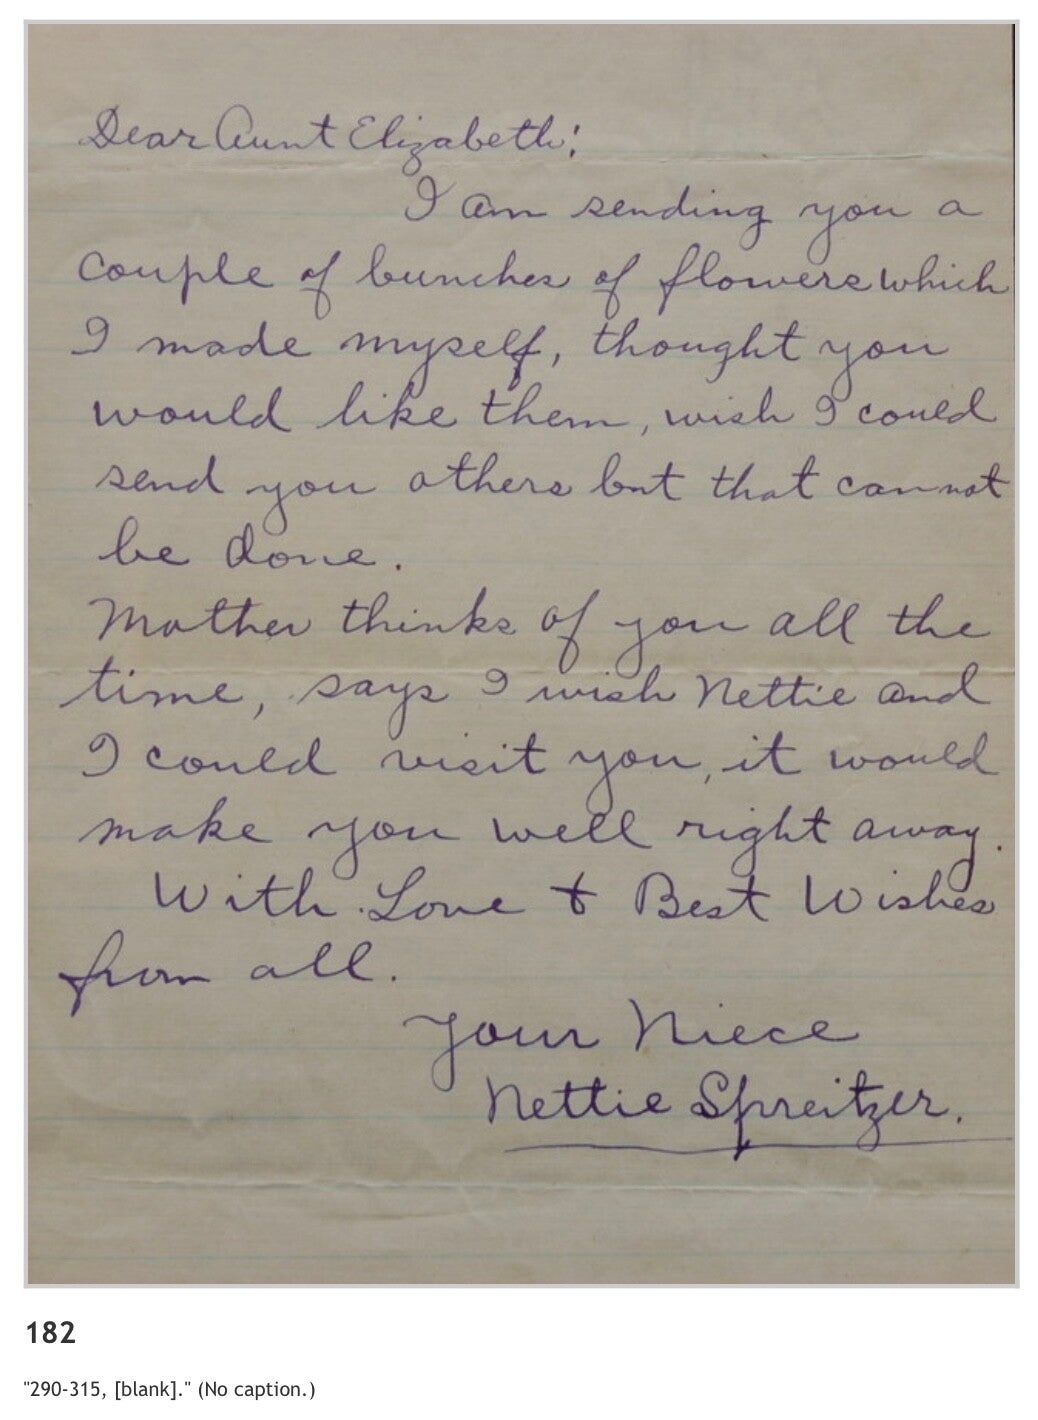 Dear Aunt Elizabeth:
I am sending you a
couple of bunches of flowers which
I made myself, thought you
would like them, wish I could
send you others but that cannot
be done.
Mother thinks of you all the
time, says I wish Nettie and
I could visit you, it would
make you well right away.
With Love & Best Wishes
from all.
Your Niece
Nettie Spreitzer.
182
"290-315, [blank]." (No caption.)